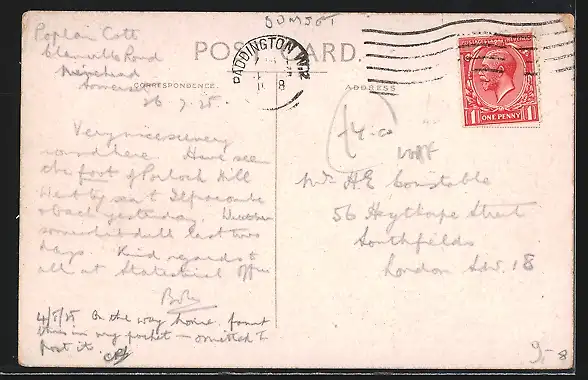 SOMSET
Poplar Cott
Road
Minehead
Somerset
26.7.25.
POST CARD.
PADDINGTON W.2
8
CORRESPONDENCE.
ADDRESS
POSTAGE REVENUE
1 ONE PENNY 1
Very nice scenery
round here. Have seen
the foot of Porlock Hill
Went by sea to Ilfracombe
& back yesterday. Weather
somewhat dull last two
days. Kind regards to
all at Statistical Office
4/8/25 On the way home. found
this in my pocket — omitted to
post it
Mr. H.E. Constable
56 Heythorpe Street
Southfields
London S.W. 18